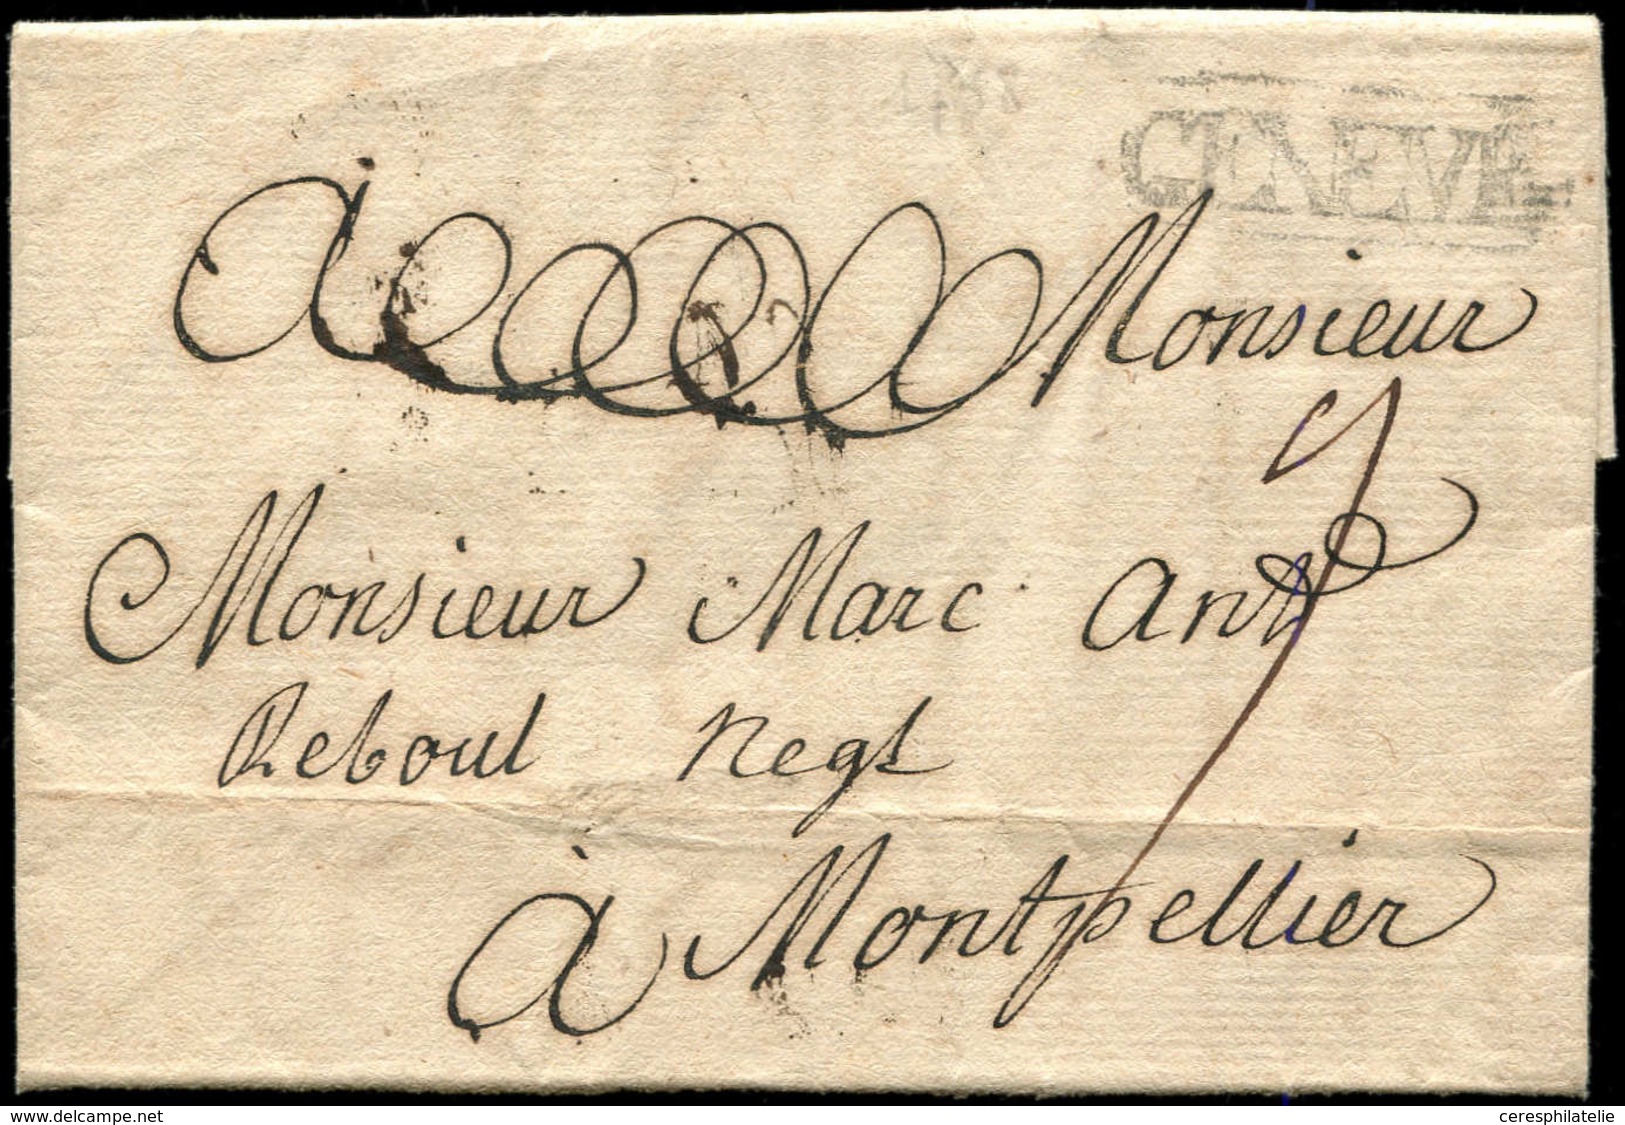 GENEVE
A Monsieur
7
Monsieur Marc Ant
Reboul Negt
à Montpellier
www.delcampe.net
ceresphilatelie